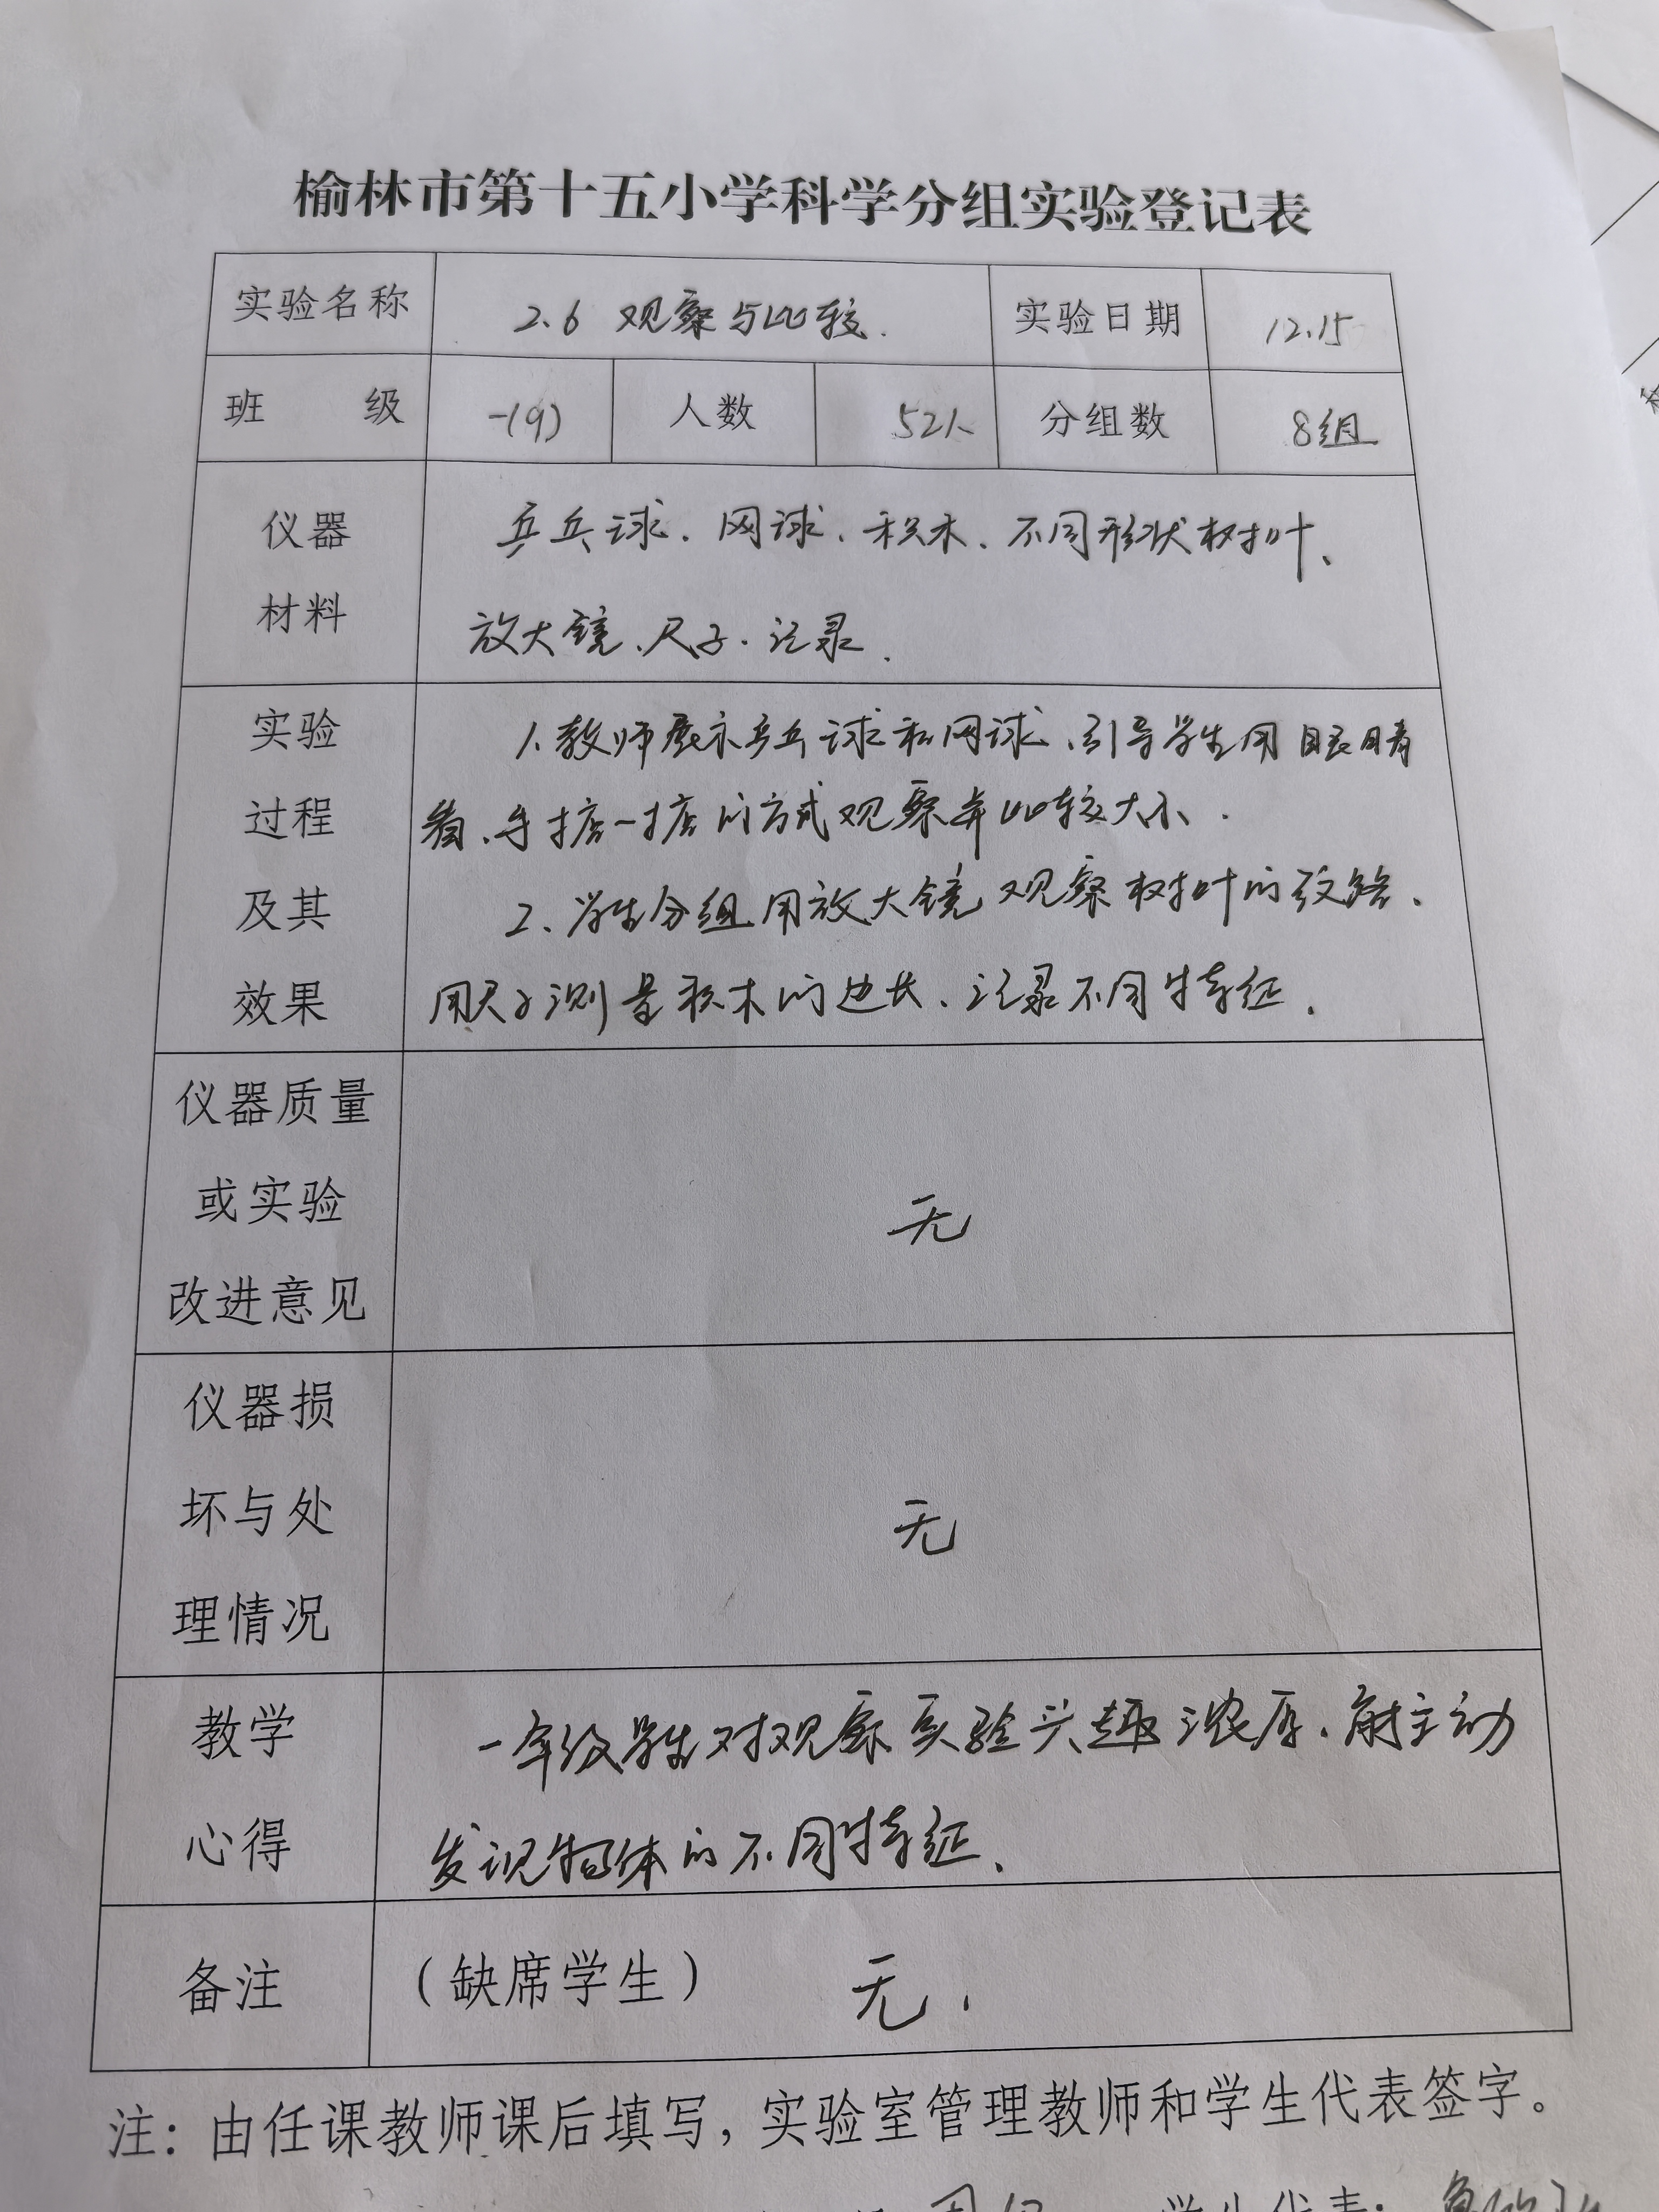 榆林市第十五小学科学分组实验登记表
实验名称 2.6 观察与比较. 实验日期 12.15
班 级 一(9) 人数 52人 分组数 8组
仪器
材料
乒乓球、网球、积木、不同形状树叶、
放大镜、尺子、记录.
实验
过程
及其
效果
1.教师展示乒乓球和网球、引导学生用眼睛
看、手掂一掂的方式观察并比较大小.
2、学生分组用放大镜观察树叶的纹路、
用尺子测量积木的边长、记录不同特征.
仪器质量
或实验
改进意见
无
仪器损
坏与处
理情况
无
教学
心得
一年级学生对观察实验兴趣浓厚、能主动
发现物体的不同特征、
备注 (缺席学生) 无.
注：由任课教师课后填写，实验室管理教师和学生代表签字。
学生代表：